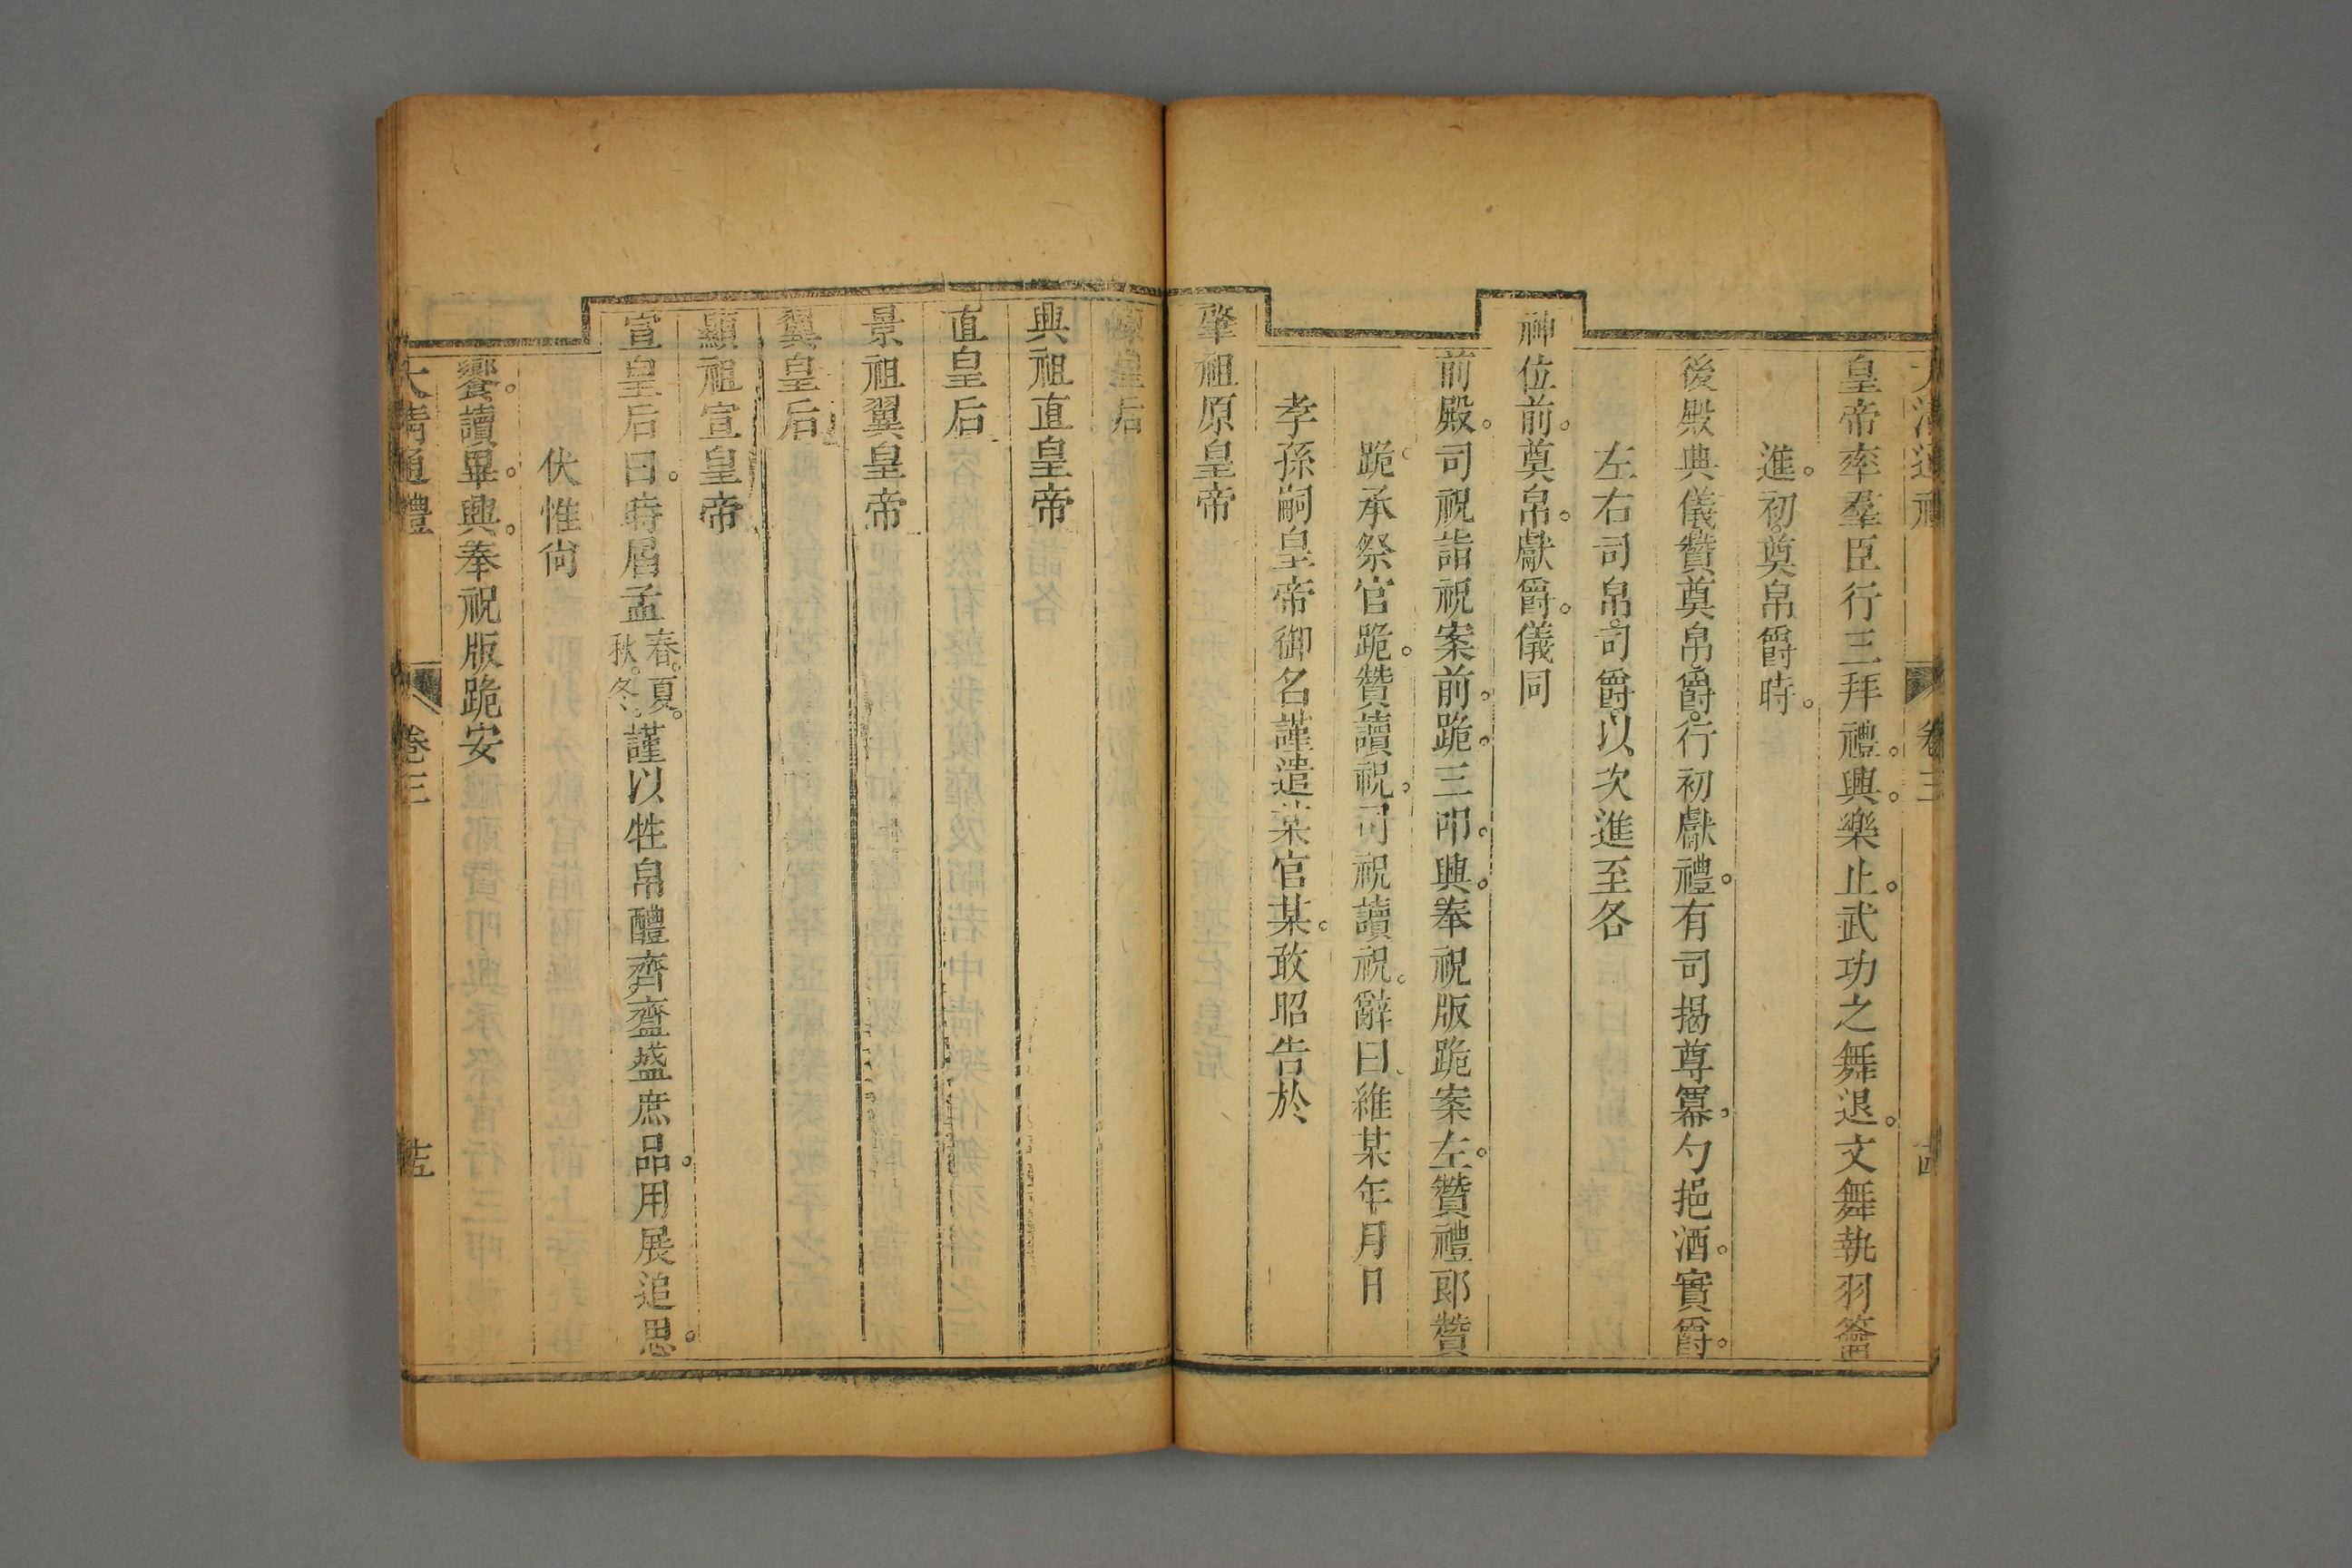 大清通禮 卷三 十四
皇帝率羣臣行三拜禮。興。樂止。武功之舞退。文舞執羽籥
進。初奠帛爵時。
後殿典儀贊奠帛。爵。行初獻禮。有司揭尊冪。勺挹酒。實爵。
左右司帛。司爵。以次進至各
神位前。奠帛。獻爵。儀同
前殿。司祝詣祝案前。跪。三叩。興。奉祝版跪案左。贊禮郎贊
跪。承祭官跪。贊讀祝。司祝讀祝。辭曰。維某年月日
孝孫嗣皇帝御名謹遣某官某。敢昭告於
肇祖原皇帝
原皇后
興祖直皇帝
直皇后
景祖翼皇帝
翼皇后
顯祖宣皇帝
宣皇后曰。時屆孟春。夏。秋。冬。謹以牲帛醴齊粢盛庶品。用展追思。
伏惟尙
饗。讀畢。興。奉祝版跪安
大清通禮 卷三 十五